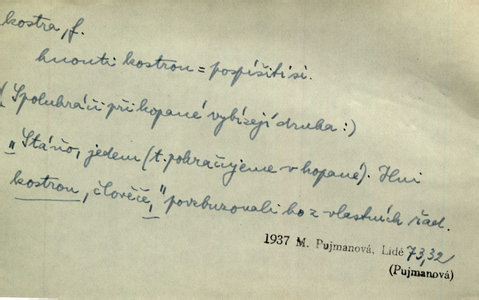 kostra, f.
hnouti kostrou = pospíšiti si.
(Spoluhráči při kopané vybízejí druha:)
„Stáňo, jedem (t. pokračujeme v kopané). Hni
kostrou, člověče," povzbuzovali ho z vlastních řad.
1937 M. Pujmanová, Lidé 73,32
(Pujmanová)